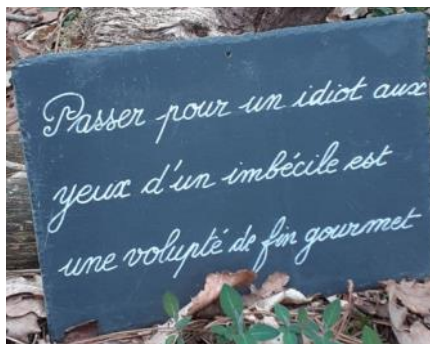 Passer pour un idiot aux
yeux d'un imbécile est
une volupté de fin gourmet